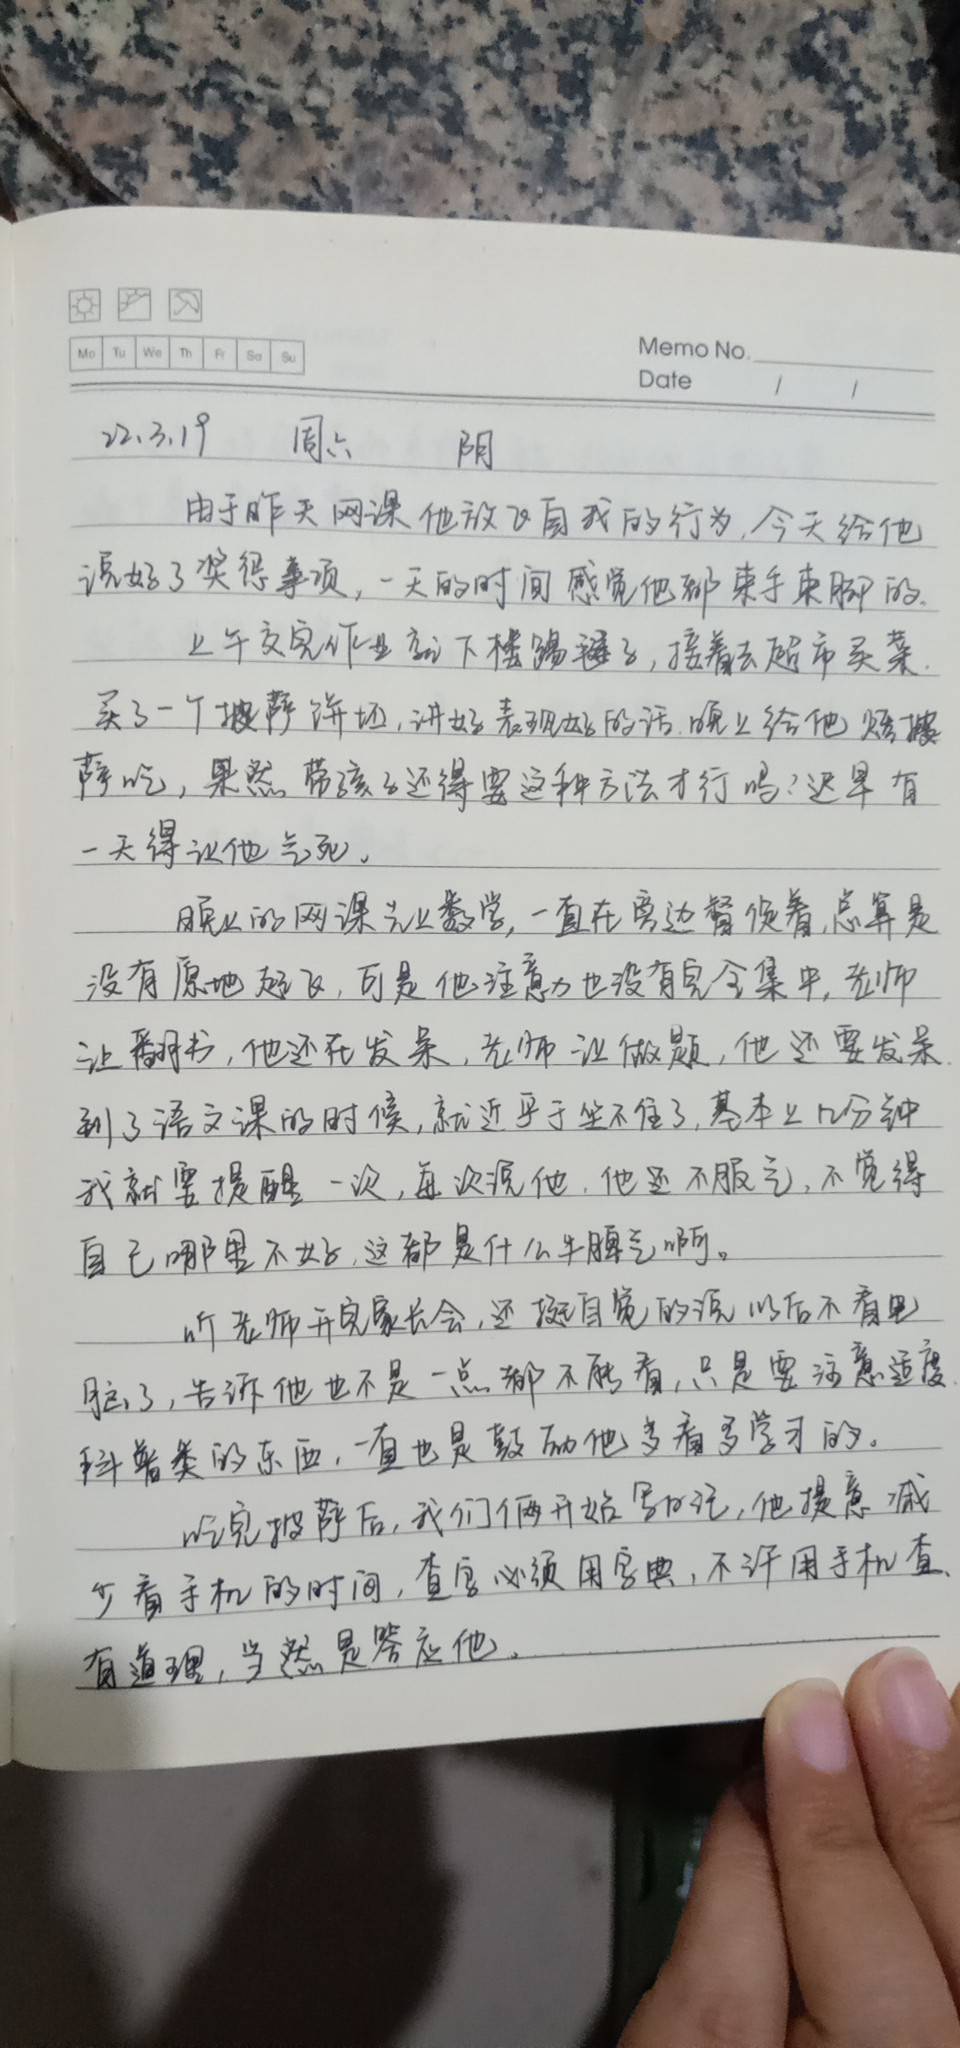 Mo Tu We Th Fr Sa Su
Memo No.
Date / /
22.3.19 周六 阴
由于昨天网课他放飞自我的行为,今天给他
说好了奖惩事项,一天的时间感觉他都束手束脚的.
上午交完作业就下楼踢毽子,接着去超市买菜.
买了一个披萨饼坯,讲好表现好的话.晚上给他烤披
萨吃,果然带孩子还得要这种方法才行吗?迟早有
一天得让他气死。
晚上的网课先上数学,一直在旁边督促着,总算是
没有原地起飞,可是他注意力也没有完全集中,老师
让翻书,他还在发呆,老师让做题,他还要发呆.
到了语文课的时候,就近乎于坐不住了,基本上几分钟
我就要提醒一次,每次说他.他还不服气,不觉得
自己哪里不好,这都是什么牛脾气啊。
听老师开完家长会,还挺自觉的说以后不看电
脑了,告诉他也不是一点都不能看,只是要注意适度.
科普类的东西,一直也是鼓励他多看多学习的。
吃完披萨后,我们俩开始写日记,他提意减
少看手机的时间,查字必须用字典,不许用手机查.
有道理,当然是答应他。